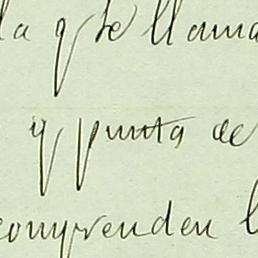 la q se llama
y punta de
comprenden l